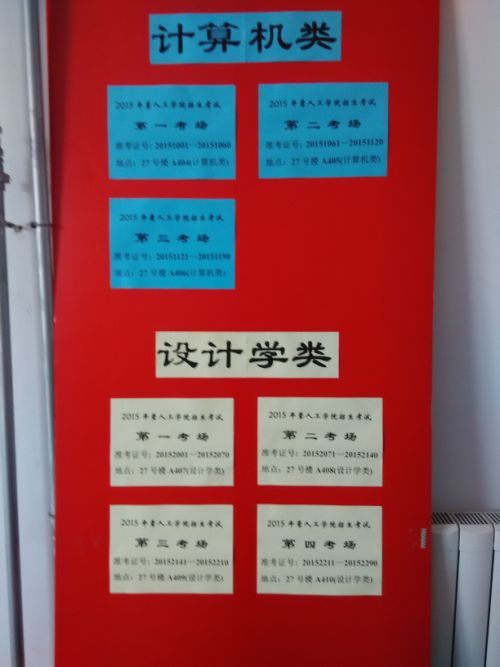 计算机类
2015年聋人工学院招生考试
第一考场
准考证号：20151001—20151060
地点：27号楼 A404(计算机类)
2015年聋人工学院招生考试
第二考场
准考证号：20151061—20151120
地点：27号楼 A405(计算机类)
2015年聋人工学院招生考试
第三考场
准考证号：20151121—20151190
地点：27号楼 A406(计算机类)
设计学类
2015年聋人工学院招生考试
第一考场
准考证号：20152001—20152070
地点：27号楼 A407(设计学类)
2015年聋人工学院招生考试
第二考场
准考证号：20152071—20152140
地点：27号楼 A408(设计学类)
2015年聋人工学院招生考试
第三考场
准考证号：20152141—20152210
地点：27号楼 A409(设计学类)
2015年聋人工学院招生考试
第四考场
准考证号：20152211—20152290
地点：27号楼 A410(设计学类)